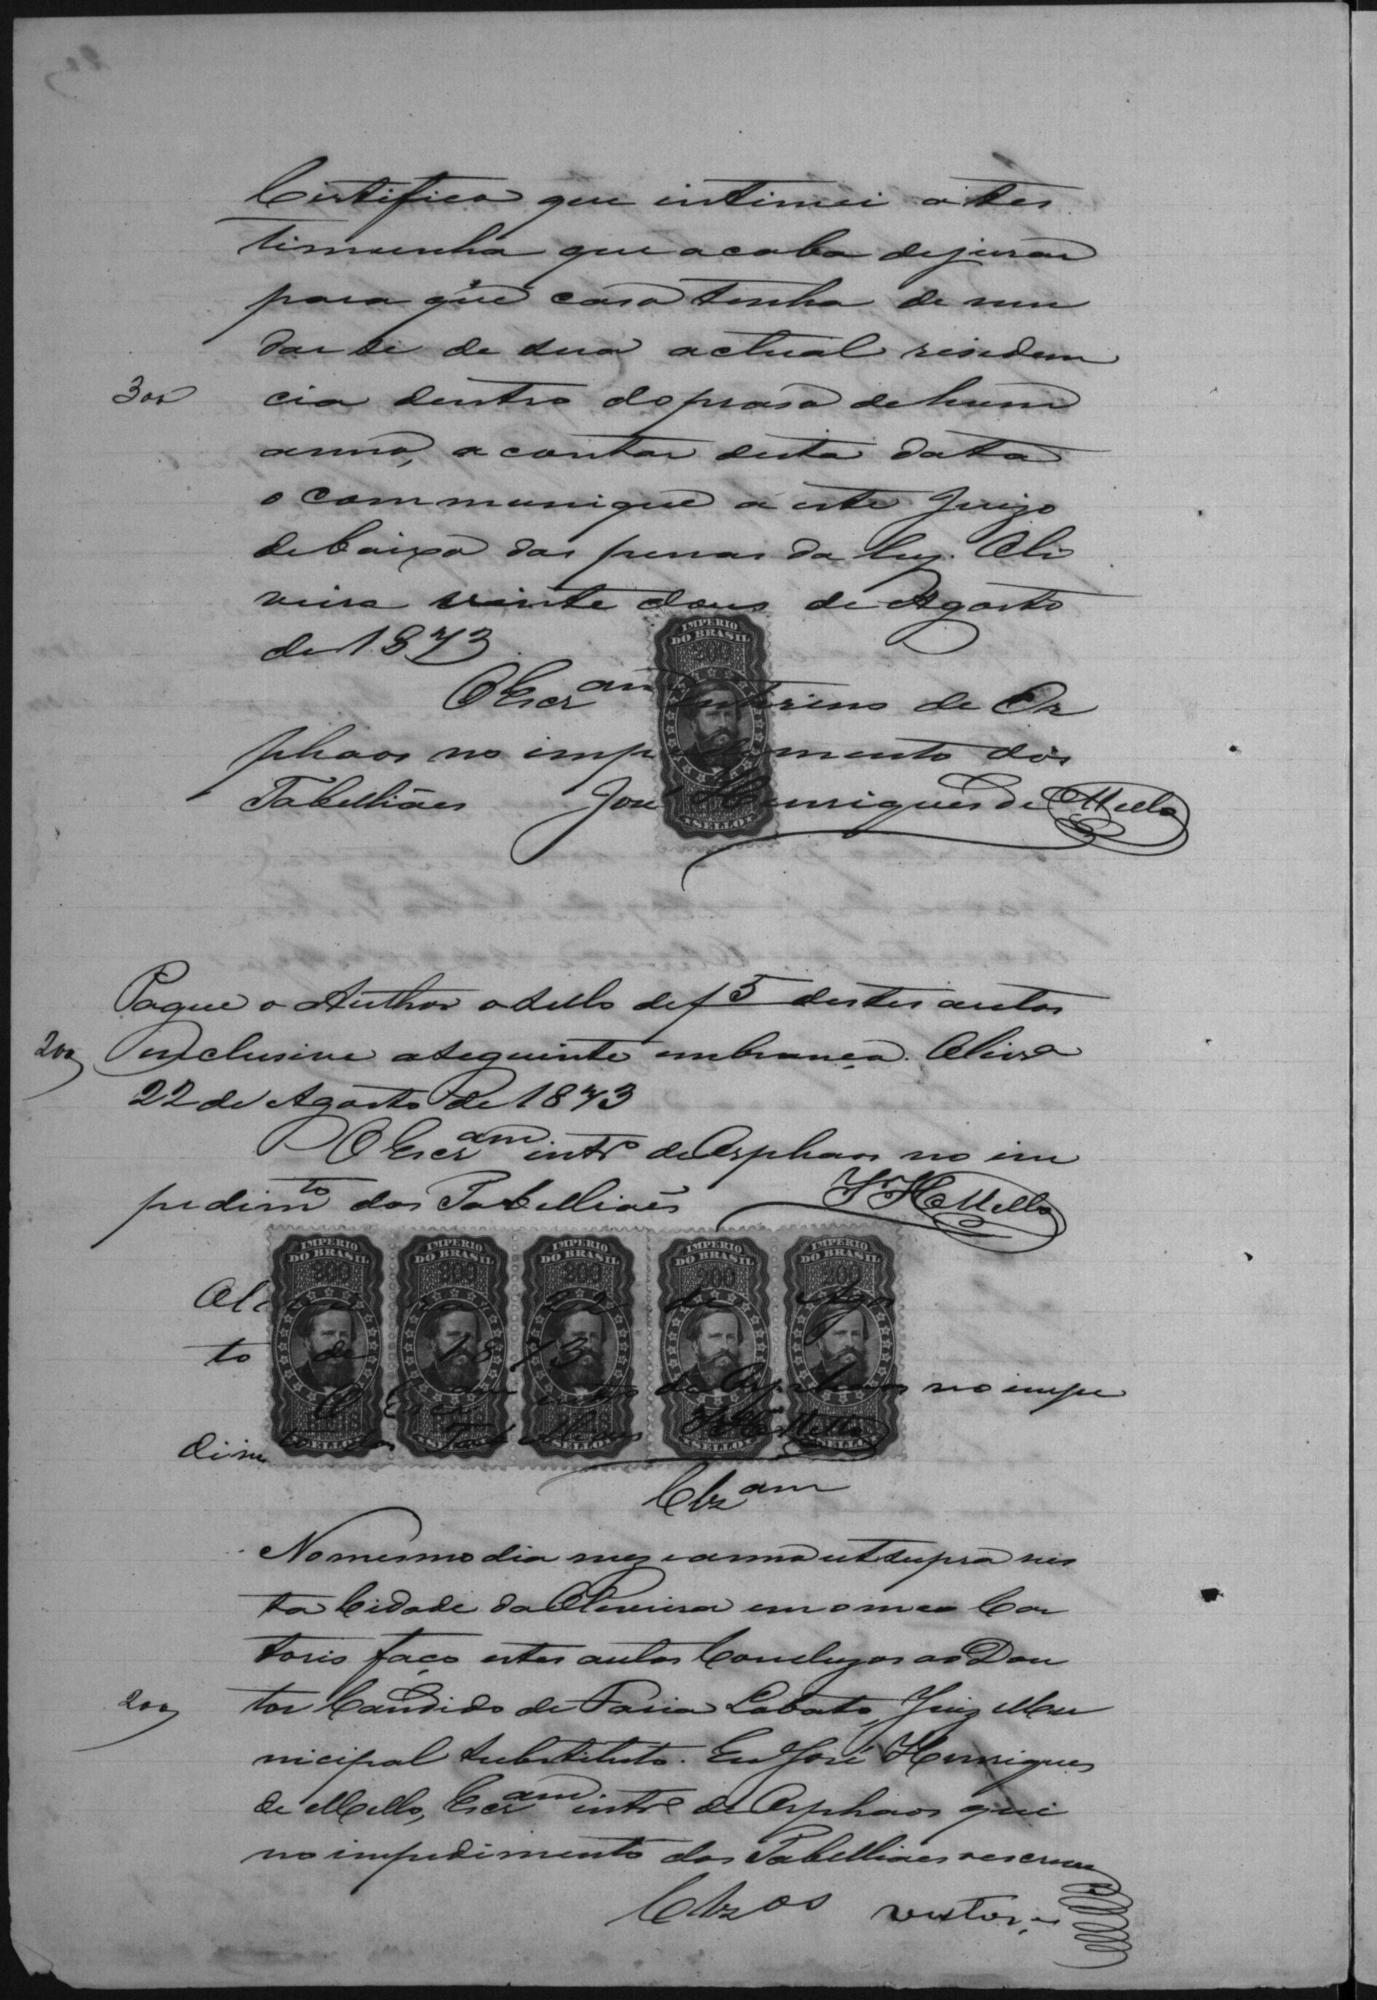 Certifico que intimei a tes
timunha que acaba de jurar
para que caso tenha de mu
dar se de sua actual residen
300
cia dentro do praso de hum
anno, a contar desta data
o communique a este Juizo
debaixo das penas da Ley. Oli
veira vinte dous de Agosto
de 1873.
IMPERIO
DO BRASIL
200
O Escr am interino de Or
phaos no impedimento dos
Tabelliães José Henriques de Mello
SELLO
Pague o Author o sello de f 5 destes autos
200
inclusive a seguinte em branca. Olivra
22 de Agosto de 1873
O Escr am intrº de Orphaos no im
pedimto dos Tabelliaẽs J. H. Mello
IMPERIO DO BRASIL 200
IMPERIO DO BRASIL 200
IMPERIO DO BRASIL 200
IMPERIO DO BRASIL 200
IMPERIO DO BRASIL 200
22 de Agos
to de 1873
O Escr am intrº de Orphaos no impe
dimto dos Tabelliaes J H Mello
SELLO SELLO SELLO SELLO SELLO
Clzam
No mesmo dia mez e anno ut supra nes
ta Cidade da Oliveira em o meo Car
torio faço estes autos Concluzos ao Dou
200
tor Candido de Faria Lobato, Juiz Mu
nicipal substituto. Eu José Henriques
de Mello, Escr am. intrº de Orphaos que
no impedimento dos Tabelliaes o escrevi
Clzos